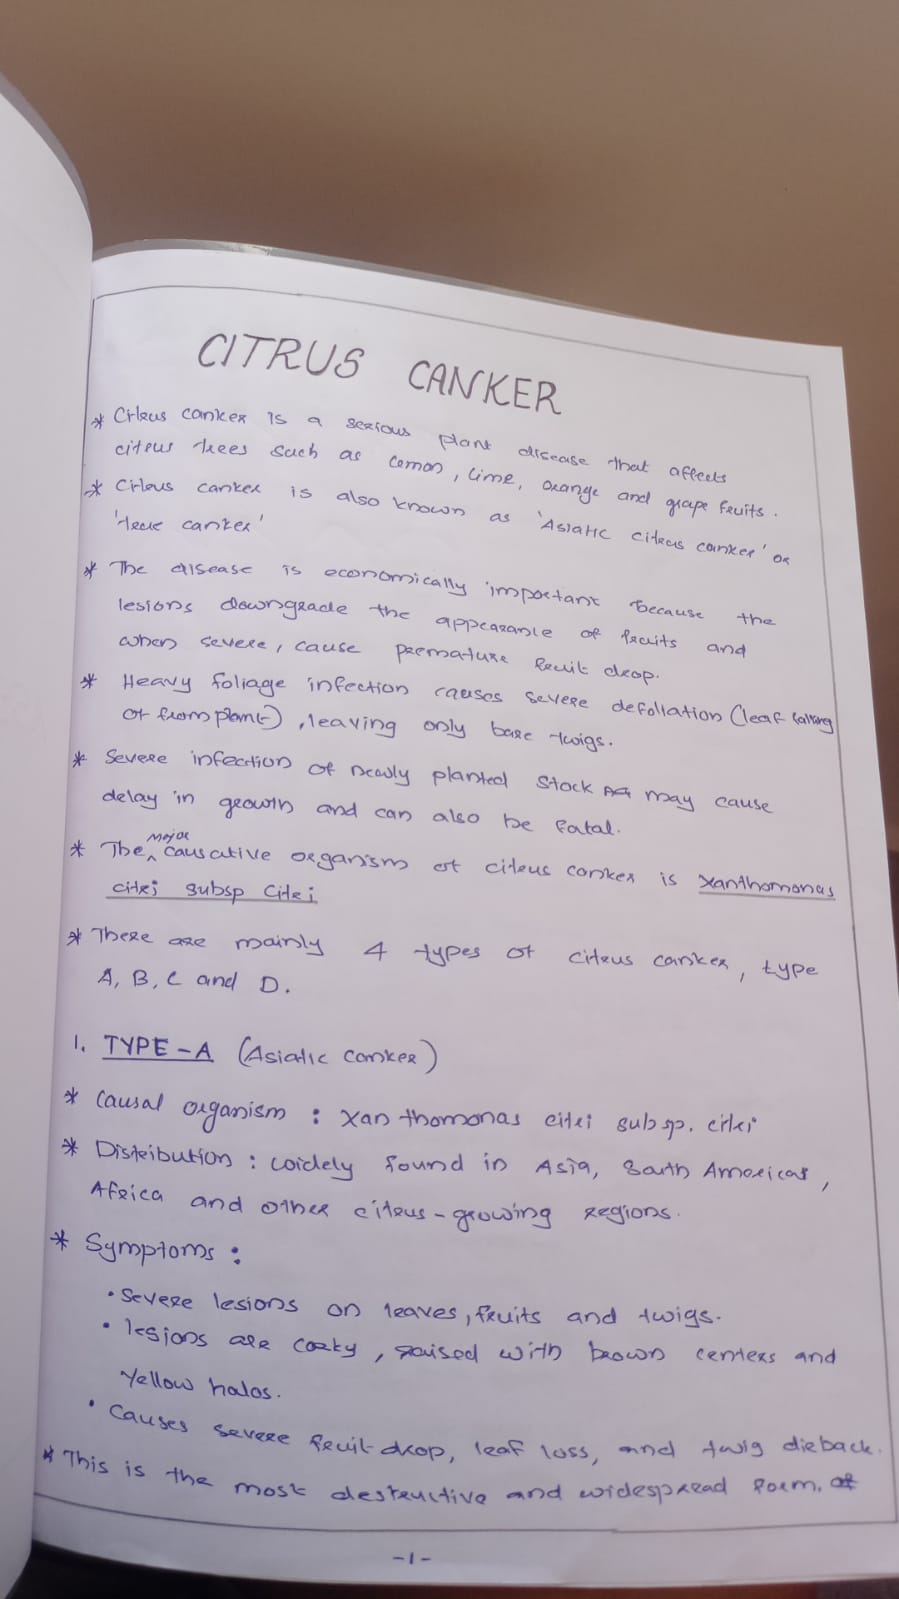 CITRUS CANKER
* Citrus canker is a serious plant disease that affects
citrus trees such as lemon, lime, orange and grape fruits.
* Citrus canker is also known as 'Asiatic citrus canker' or
'true canker'
* The disease is economically important because the
lesions downgrade the appearance of fruits and
when severe, cause premature fruit drop.
* Heavy foliage infection causes severe defoliation (leaf falling
of from plant), leaving only bare twigs.
* Severe infection of newly planted stock may cause
delay in growth and can also be fatal.
* The major causative organism of citrus canker is Xanthomonas
citri subsp citri
* There are mainly 4 types of citrus canker, type
A, B, C and D.
1. TYPE-A (Asiatic canker)
* Causal organism : Xanthomonas citri subsp. citri
* Distribution : widely found in Asia, South Americas,
Africa and other citrus-growing regions.
* Symptoms :
• Severe lesions on leaves, fruits and twigs.
• lesions are corky, raised with brown centers and
yellow halos.
• Causes severe fruit drop, leaf loss, and twig dieback.
* This is the most destructive and widespread form. of
-1-